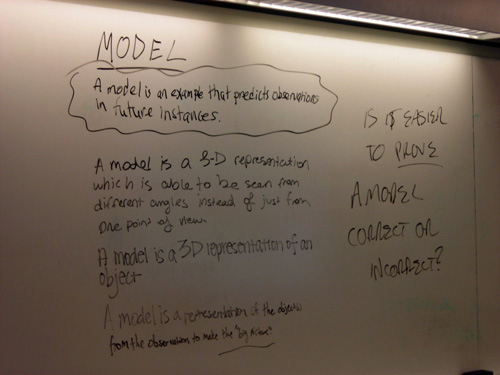 MODEL
A model is an example that predicts observations
in future instances.
A model is a 3-D representation
which is able to be seen from
different angles instead of just from
one point of view.
A model is a 3D representation of an
object
A model is a representation of the objects
from the observation to make the "big picture"
IS IT EASIER
TO PROVE
A MODEL
CORRECT OR
INCORRECT?